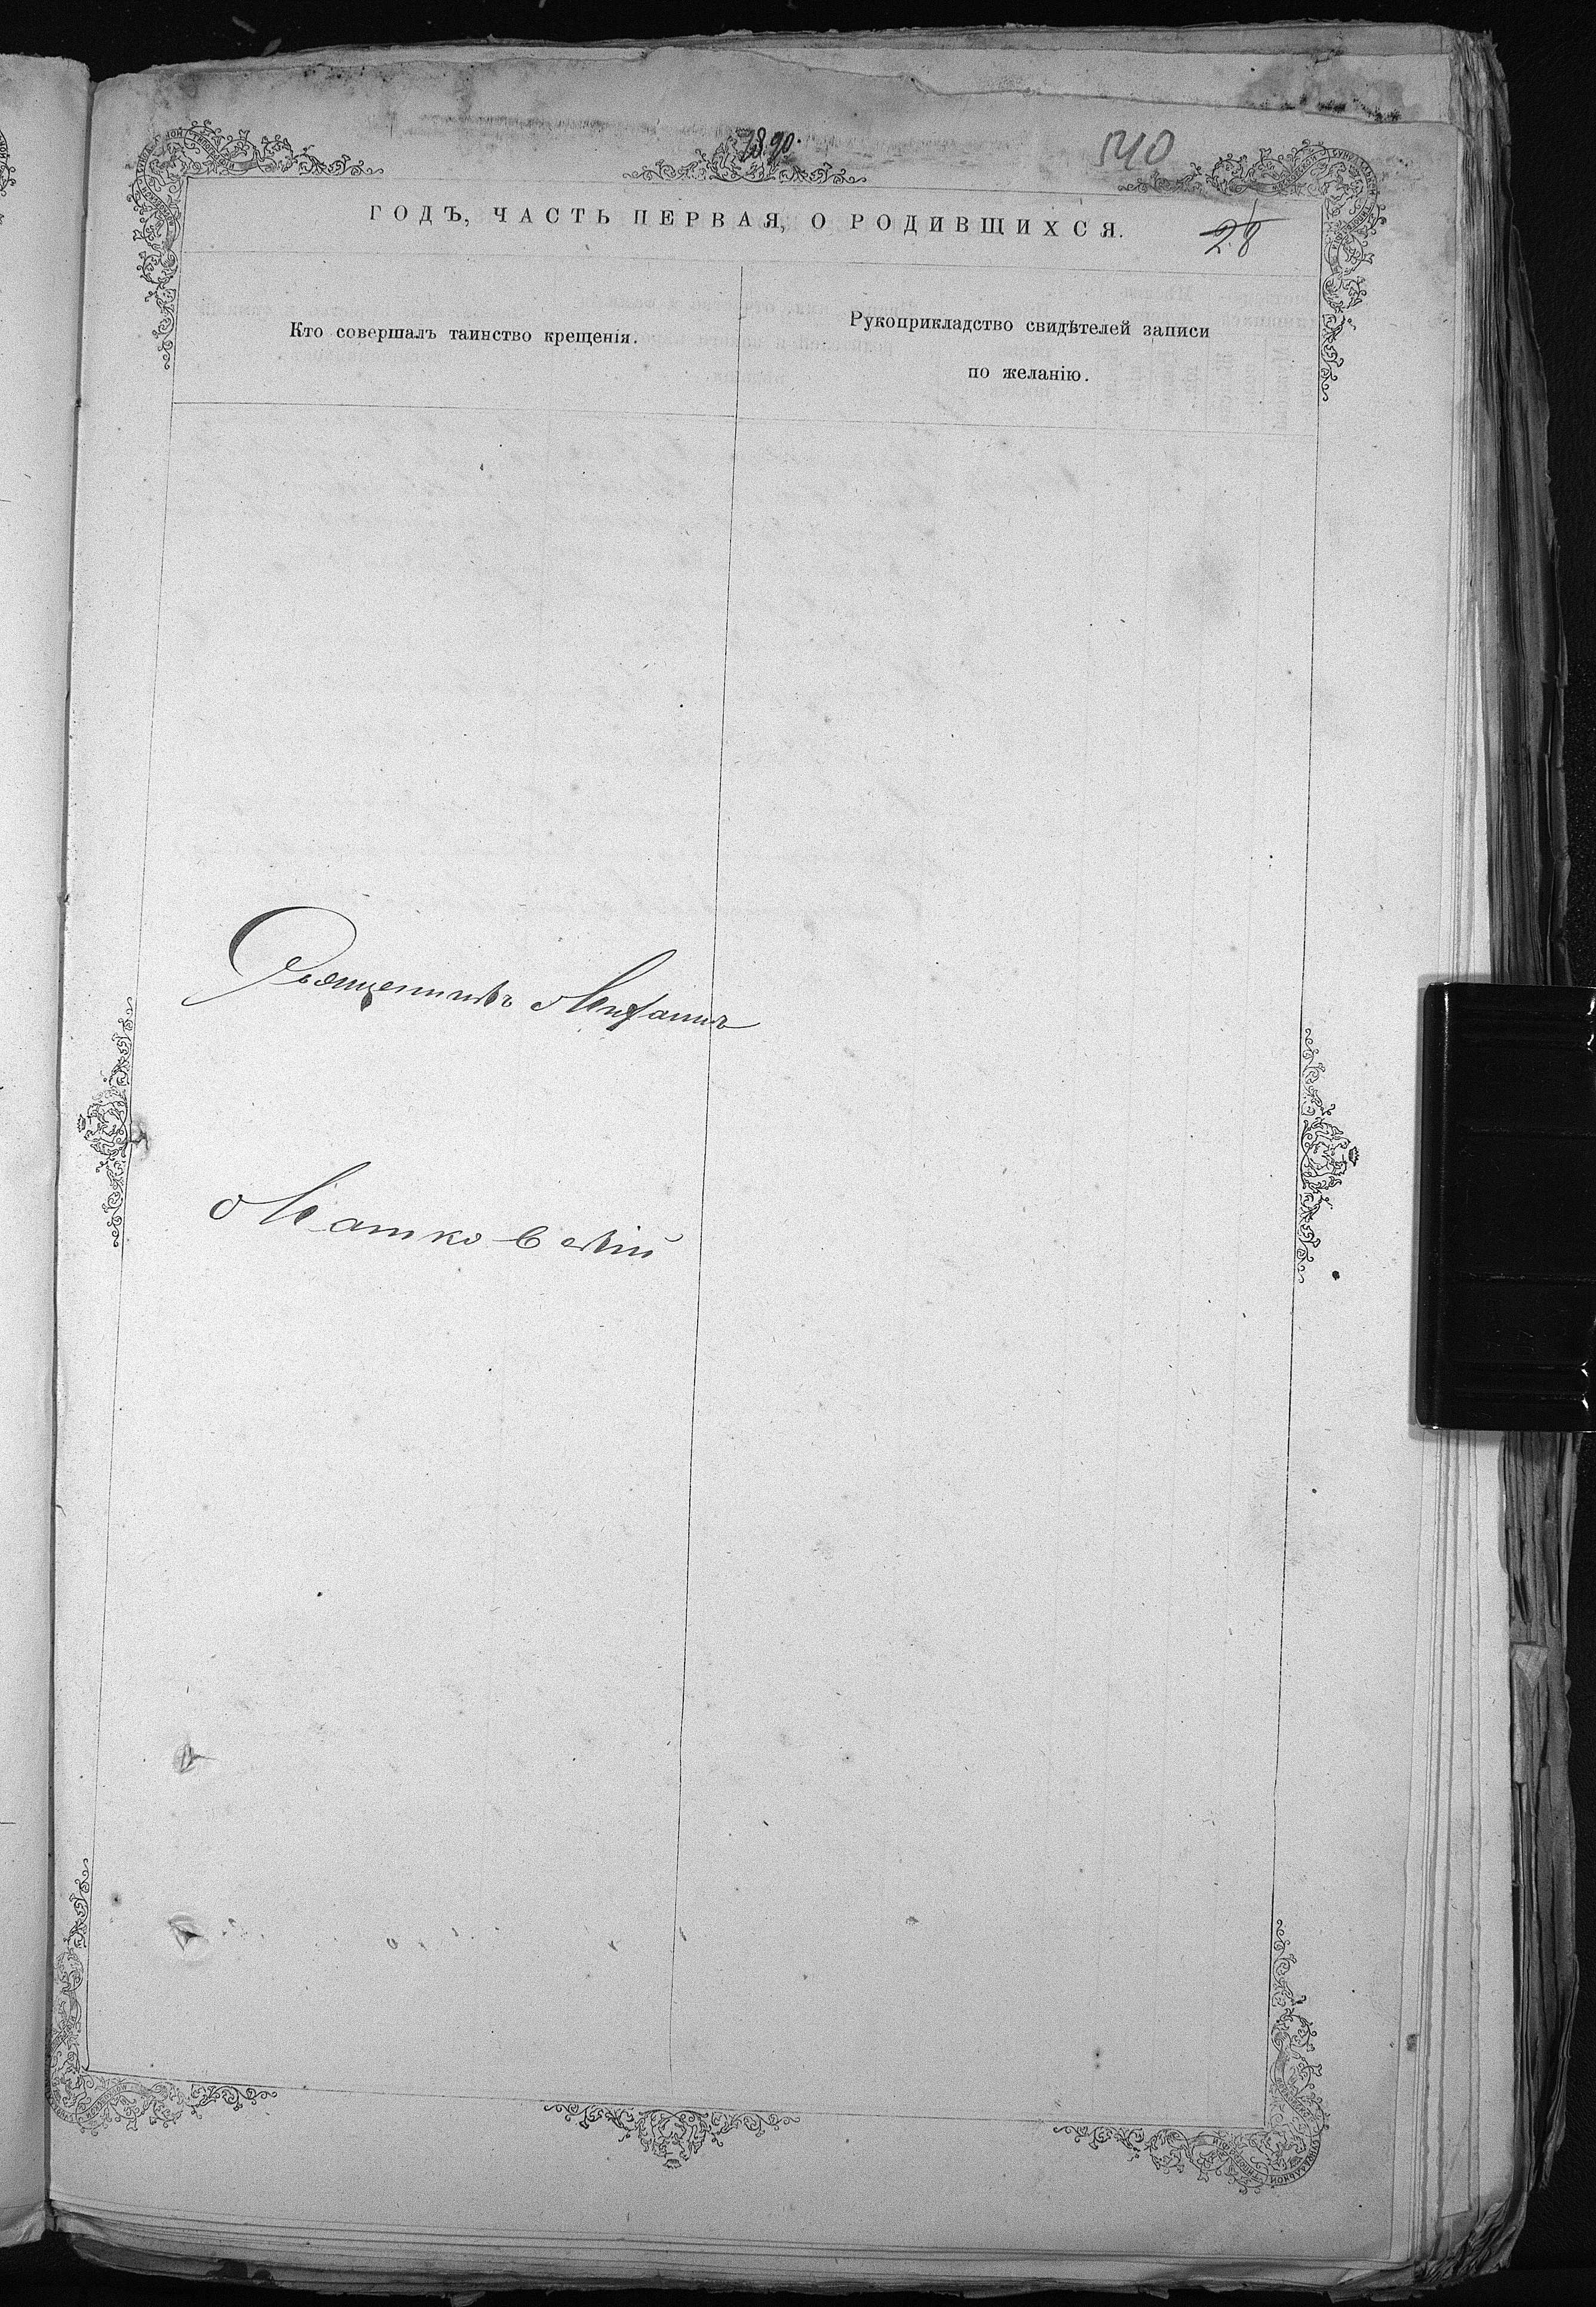 1890.
540
ГОДЪ, ЧАСТЬ ПЕРВАЯ, О РОДИВШИХСЯ.
28
Кто совершалъ таинство крещенія.
Рукоприкладство свидѣтелей записи
по желанію.
Священникъ Михаилъ
Матковскій